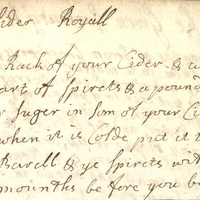 Sider Royall
Rack of your Cider & w
art of spirets & a pound
r suger in som of your Ci
when it is Colde put it t
Barell & ye spirets wit
mounths be fore you b